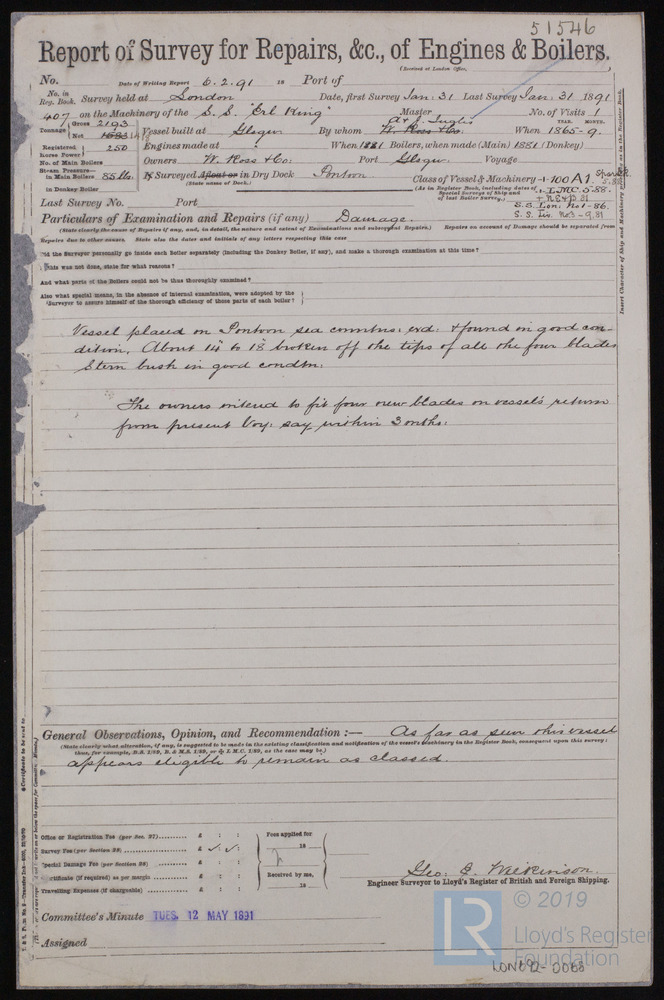 51546
Report of Survey for Repairs, &c., of Engines & Boilers.
(Received at London Office,
No. Date of Writing Report 6.2.91 18 Port of
No. in Reg. Book. Survey held at London Date, first Survey Jan: 31 Last Survey Jan: 31 1891
407 on the Machinery of the S. S. "Erl King" Master No. of Visits 1
Tonnage Gross 2193 Net 1683 Vessel built at Glasgow By whom W. Ross & Co. When 1865-9. YEAR. MONTH.
Registered Horse Power 250 Engines made at ? When 1881 Boilers, when made (Main) 1881 (Donkey)
No. of Main Boilers Owners W. Ross & Co: Port Glasgow: Voyage
Steam Pressure— in Main Boilers 85 lbs. If Surveyed Afloat or in Dry Dock Pontoon Class of Vessel & Machinery 100 A1
(State name of Dock.) (As in Register Book, including dates of Special Surveys of Ship and of last Boiler Survey.) L.M.C. 5.88.
in Donkey Boiler
S.S. Lon. No1-86.
Last Survey No. Port S.S. No3-9.81
Particulars of Examination and Repairs (if any) Damage.
(State clearly the cause of Repairs if any, and, in detail, the nature and extent of Examinations and subsequent Repairs.) Repairs on account of Damage should be separated from
Repairs due to other causes. State also the dates and initials of any letters respecting this case
Did the Surveyor personally go inside each Boiler separately (including the Donkey Boiler, if any), and make a thorough examination at this time?
If this was not done, state for what reasons?
And what parts of the Boilers could not be thus thoroughly examined?
Also what special means, in the absence of internal examination, were adopted by the
Surveyor to assure himself of the thorough efficiency of those parts of each boiler?
Vessel placed on Pontoon sea connctns: exd: & found in good con-
dition. About 14" to 18" broken off the tips of all the four blades
Stern bush in good condtn:
The owners intend to fit four new blades on vessel's return
from present Voy: say within 3 onths:
General Observations, Opinion, and Recommendation :— As far as seen this vessel
(State clearly what alteration, if any, is suggested to be made in the existing classification and notification of the vessel's machinery in the Register Book, consequent upon this survey:
thus, for example, B.S. 1/89, B. & M.S. 1/89, or L.M.C. 1/89, as the case may be.)
appears eligible to remain as classed.
Office or Registration Fee (per Sec. 27) £ : :
Survey Fee (per Section 28) £ : :
Special Damage Fee (per Section 28) £ : :
Certificate (if required) as per margin £ : :
Travelling Expenses (if chargeable) £ : :
Fees applied for
18
Received by me,
18
Geo: C. Wilkinson.
Engineer Surveyor to Lloyd's Register of British and Foreign Shipping.
Committee's Minute TUES. 12 MAY 1891
Assigned
Insert Character of Ship and Machinery precisely as in the Register Book.
LR © 2019
Lloyd's Register
Foundation
LON692-0066